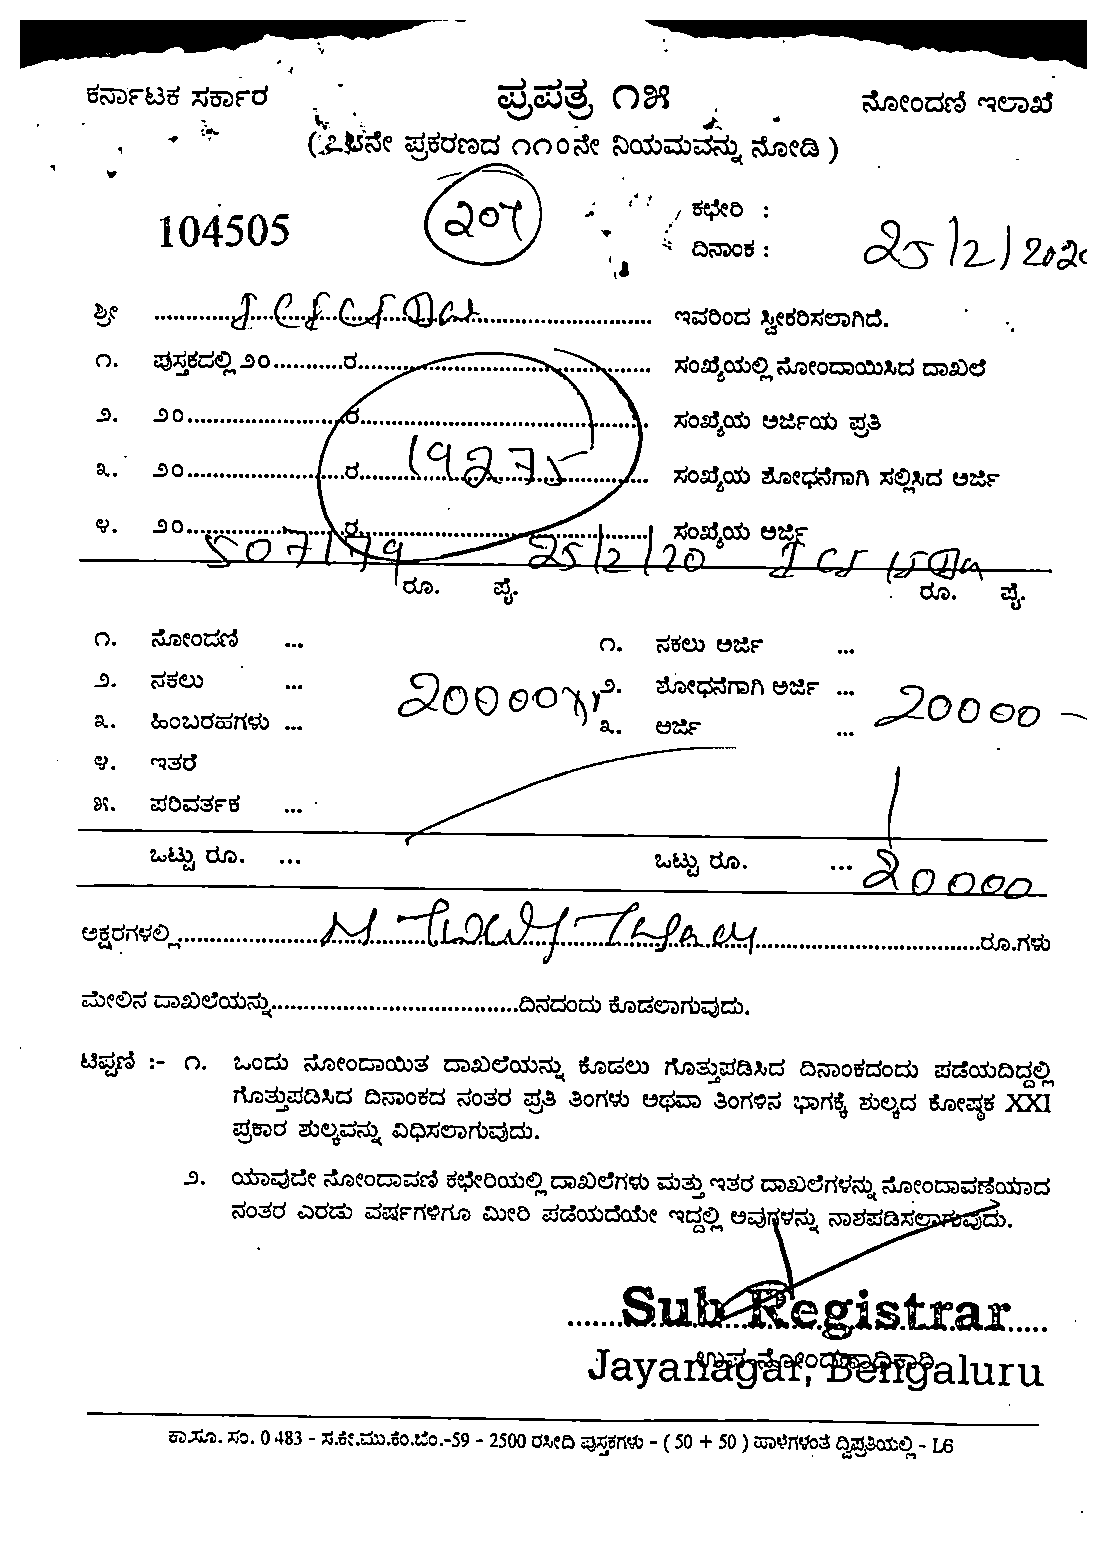 ಕರ್ನಾಟಕ ಸರ್ಕಾರ ಪ್ರಪತ್ರ ೧೫ ನೋಂದಣಿ ಇಲಾಖೆ
ಪ್ರಕರಣದ ೧೧೦ನೇ ನಿಯಮವನ್ನು ನೋಡಿ )
104505 207 ಕಛೇರಿ :
ದಿನಾಂಕ : 25/2/2020
ಶ್ರೀ ಇವರಿಂದ ಸ್ವೀಕರಿಸಲಾಗಿದೆ.
೧. ಪುಸ್ತಕದಲ್ಲಿ ೨೦...........ರ ಸಂಖ್ಯೆಯಲ್ಲಿ ನೋಂದಾಯಿಸಿದ ದಾಖಲೆ
೨. ೨೦...........ರ ಸಂಖ್ಯೆಯ ಅರ್ಜಿಯ ಪ್ರತಿ
೩. ೨೦...........ರ 19275 ಸಂಖ್ಯೆಯ ಶೋಧನೆಗಾಗಿ ಸಲ್ಲಿಸಿದ ಅರ್ಜಿ
೪. ೨೦...........ರ ಸಂಖ್ಯೆಯ ಅರ್ಜಿ
507179 25/2/20
ರೂ. ಪೈ. ರೂ. ಪೈ.
೧. ನೋಂದಣಿ ... ೧. ನಕಲು ಅರ್ಜಿ ...
೨. ನಕಲು ... 20000 ೨. ಶೋಧನೆಗಾಗಿ ಅರ್ಜಿ ... 20000 –
೩. ಹಿಂಬರಹಗಳು ... ೩. ಅರ್ಜಿ ...
೪. ಇತರೆ
೫. ಪರಿವರ್ತಕ ...
ಒಟ್ಟು ರೂ. ... ಒಟ್ಟು ರೂ. ... 20000
ಅಕ್ಷರಗಳಲ್ಲಿ ರೂ.ಗಳು
ಮೇಲಿನ ದಾಖಲೆಯನ್ನು..................................ದಿನದಂದು ಕೊಡಲಾಗುವುದು.
ಟಿಪ್ಪಣಿ :- ೧. ಒಂದು ನೋಂದಾಯಿತ ದಾಖಲೆಯನ್ನು ಕೊಡಲು ಗೊತ್ತುಪಡಿಸಿದ ದಿನಾಂಕದಂದು ಪಡೆಯದಿದ್ದಲ್ಲಿ
ಗೊತ್ತುಪಡಿಸಿದ ದಿನಾಂಕದ ನಂತರ ಪ್ರತಿ ತಿಂಗಳು ಅಥವಾ ತಿಂಗಳಿನ ಭಾಗಕ್ಕೆ ಶುಲ್ಕದ ಕೋಷ್ಠಕ XXI
ಪ್ರಕಾರ ಶುಲ್ಕವನ್ನು ವಿಧಿಸಲಾಗುವುದು.
೨. ಯಾವುದೇ ನೋಂದಾವಣಿ ಕಛೇರಿಯಲ್ಲಿ ದಾಖಲೆಗಳು ಮತ್ತು ಇತರ ದಾಖಲೆಗಳನ್ನು ನೋಂದಾವಣೆಯಾದ
ನಂತರ ಎರಡು ವರ್ಷಗಳಿಗೂ ಮೀರಿ ಪಡೆಯದೆಯೇ ಇದ್ದಲ್ಲಿ ಅವುಗಳನ್ನು ನಾಶಪಡಿಸಲಾಗುವುದು.
Sub Registrar
ಉಪನೋಂದಣಾಧಿಕಾರಿ
Jayanagar, Bengaluru
ಕಾ.ಸೂ. ಸಂ. 0 483 – ಸ.ಕೇ.ಮು.ಕೆಂ.ಬೆಂ.-59 – 2500 ರಸೀದಿ ಪುಸ್ತಕಗಳು – ( 50 + 50 ) ಹಾಳೆಗಳಂತೆ ದ್ವಿಪ್ರತಿಯಲ್ಲಿ – L6